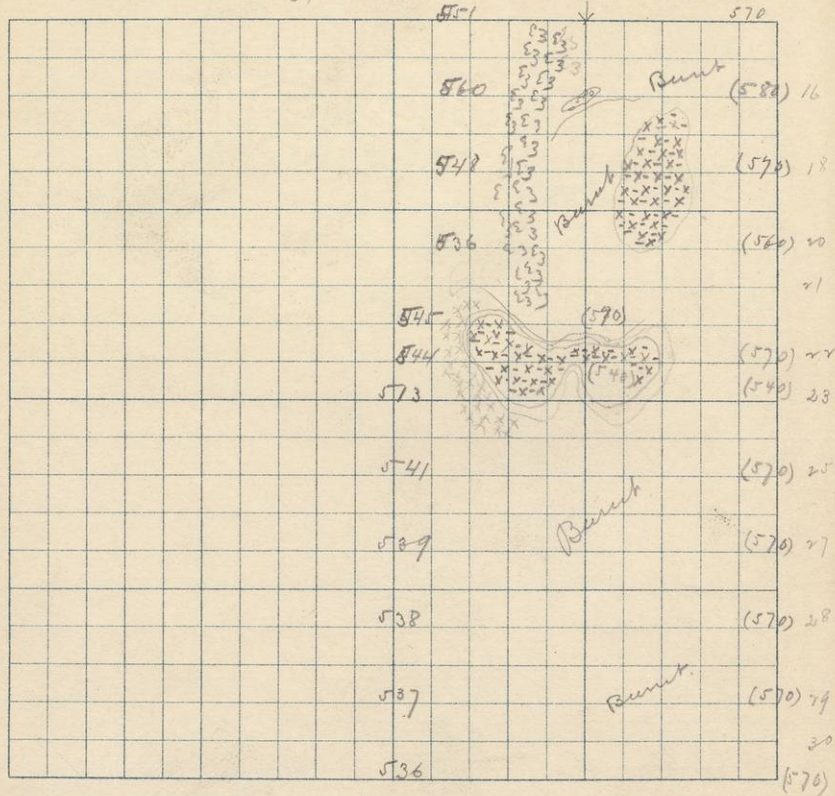 551 570
Burnt
560 (580) 16
548 (570) 18
Burnt
536 (560) 20
21
545 (590)
544 (570) 22
(540)
513 (540) 23
541 (570) 25
Burnt
539 (570) 27
538 (570) 28
537 Burnt (570) 29
30
536 (570)